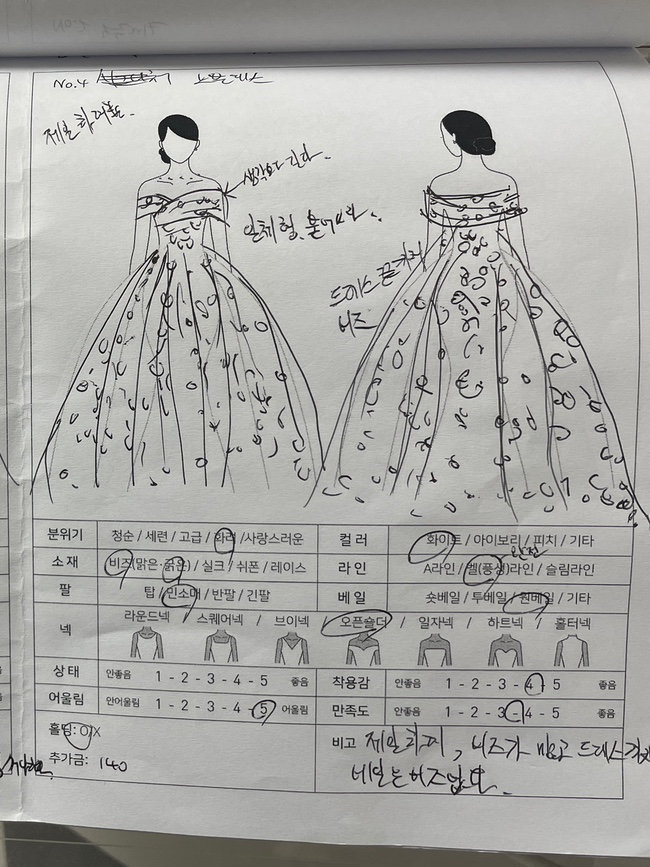 No.4
제일 화려함.
생각보다 길다.
일체형, 붙어있다.
드레스 끝까지
비즈
분위기 청순 / 세련 / 고급 / 화려 /사랑스러운
컬 러 화이트 / 아이보리 / 피치 / 기타
완전
소 재 비즈(맑은·굵은) / 실크 / 쉬폰 / 레이스
라 인 A라인 / 벨(풍성)라인 / 슬림라인
팔 탑 / 민소매 / 반팔 / 긴팔
베 일 숏베일 / 투베일 / 원베일 / 기타
넥 라운드넥 / 스퀘어넥 / 브이넥 / 오픈숄더 / 일자넥 / 하트넥 / 홀터넥
상 태 안좋음 1 - 2 - 3 - 4 - 5 좋음
착용감 안좋음 1 - 2 - 3 - 4 - 5 좋음
어울림 안어울림 1 - 2 - 3 - 4 - 5 어울림
만족도 안좋음 1 - 2 - 3 - 4 - 5 좋음
홀딩: O/X
추가금: 140
비고 제일 화려, 비즈가 많고 드레스
베일는 비즈없음.